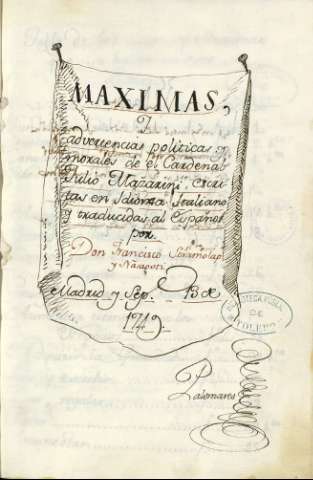 MAXIMAS,
Y
advertencias politicas, y
morales de el Cardenal
Julio Mazarini, escri-
tas en Idioma Italiano,
y traducidas al Español
por
Don Francisco
y
Madrid y Sep.e 13 de
1749.
BIBLIOTECA PUBLICA
DE
TOLEDO
Palomares